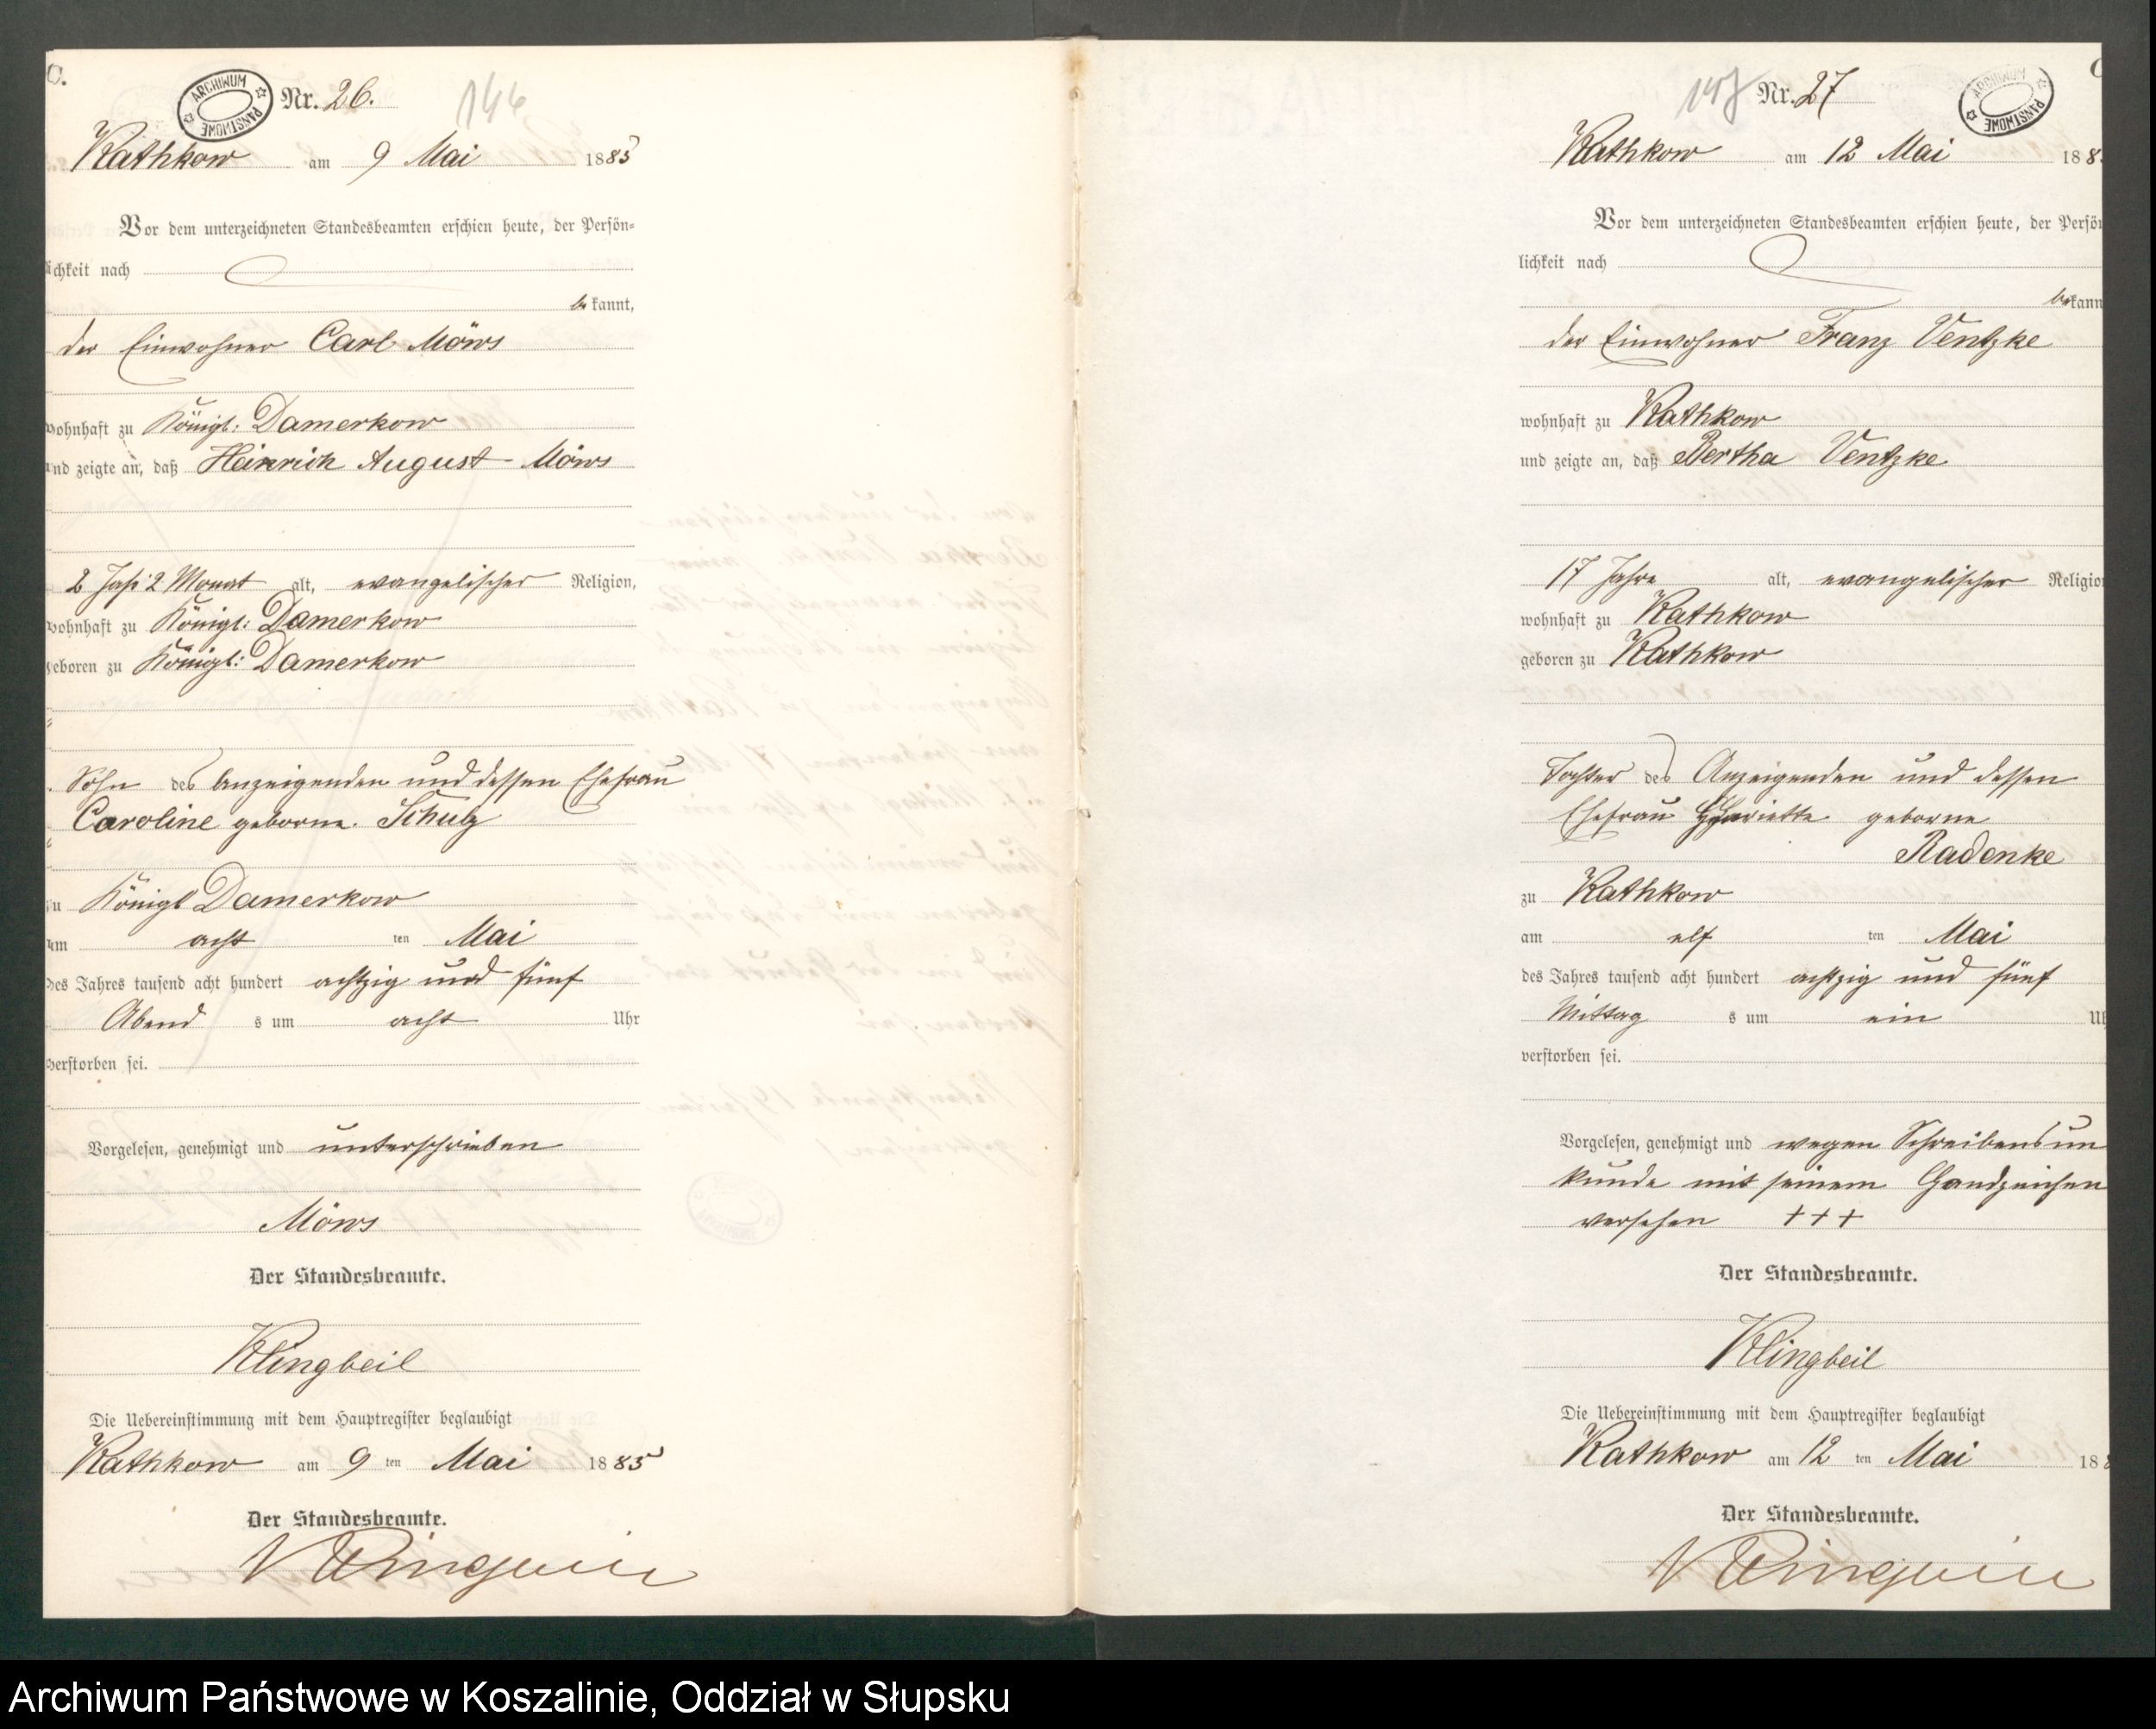 C.
ARCHIWUM PAŃSTWOWE
Nr. 26.
144
Rathkow am 9 Mai 1885
Vor dem unterzeichneten Standesbeamten erschien heute, der Persön-
lichkeit nach
bekannt,
der Einwohner Carl Möws
wohnhaft zu Königl: Damerkow
und zeigte an, daß Heinrich August Möws
2 Jahr 2 Monat alt, evangelischer Religion,
wohnhaft zu Königl: Damerkow
geboren zu Königl: Damerkow
Sohn des Anzeigenden und dessen Ehefrau
Caroline geborne Schulz
zu Königl Damerkow
am acht ten Mai
des Jahres tausend acht hundert achtzig und fünf
Abend s um acht Uhr
verstorben sei.
Vorgelesen, genehmigt und unterschrieben
Möws
Der Standesbeamte.
Klingbeil
Die Uebereinstimmung mit dem Hauptregister beglaubigt
Rathkow am 9 ten Mai 1885
Der Standesbeamte.
Nr. 27
ARCHIWUM PAŃSTWOWE
C
Rathkow am 12 Mai 188
Vor dem unterzeichneten Standesbeamten erschien heute, der Persön
lichkeit nach
bekann
der Einwohner Franz Ventzke
wohnhaft zu Rathkow
und zeigte an, daß Bertha Ventzke
17 Jahre alt, evangelischer Religio
wohnhaft zu Rathkow
geboren zu Rathkow
Tochter des Anzeigenden und dessen
Ehefrau Henriette geborne
Radenke
zu Rathkow
am elf ten Mai
des Jahres tausend acht hundert achtzig und fünf
Mittag s um ein Uh
verstorben sei.
Vorgelesen, genehmigt und wegen Schreibensun
kunde mit seinem Handzeichen
versehen +++
Der Standesbeamte.
Klingbeil
Die Uebereinstimmung mit dem Hauptregister beglaubigt
Rathkow am 12 ten Mai 188
Der Standesbeamte.
Archiwum Państwowe w Koszalinie, Oddział w Słupsku